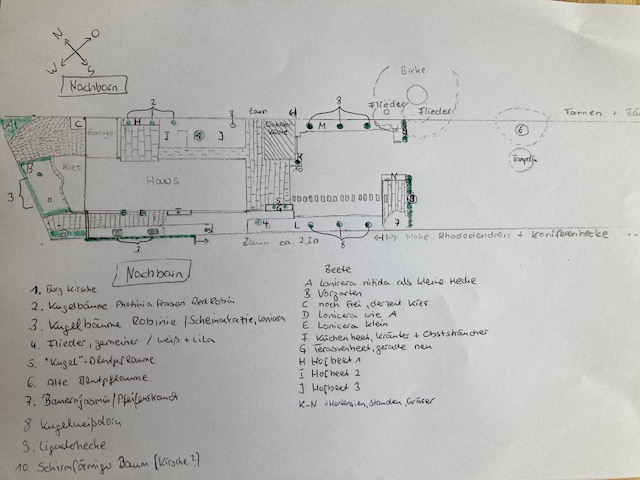 N O
W S
Nachbarn
Birke
Flieder
Flieder
Tannen +
2
8
8
Zaun
A
C
Garage
H
I
J
M
6
B
Kies
Haus
10
3
N
E
F
G
4
L
7
3
8
Zaun ca. 2,10
Hohe Rhododendren + Koniferenhecke
Nachbarn
1. Berg Kirsche
2. Kugelbäume Photinia Fraseri Red Robin
3. Kugelbäume Robinie / Scheinakazie, Lonicera
4. Flieder, gemeiner / weiß + Lila
5. "Kugel"-Blutpflaume
6. Alte Blutpflaume
7. Bauernjasmin / Pfeifenstrauch
8 Kugelweißdorn
9. Ligusterhecke
10. Schirmförmiger Baum (Kirsche?)
Beete
A Lonicera nitida als kleine Hecke
B Vorgarten
C noch frei, derzeit Kies
D Lonicera wie A
E Lonicera klein
F Küchenbeet, Kräuter + Obststräucher
G Terassenbeet, gerade neu
H Hofbeet 1
I Hofbeet 2
J Hofbeet 3
K-N Hortensien, Stauden, Gräser